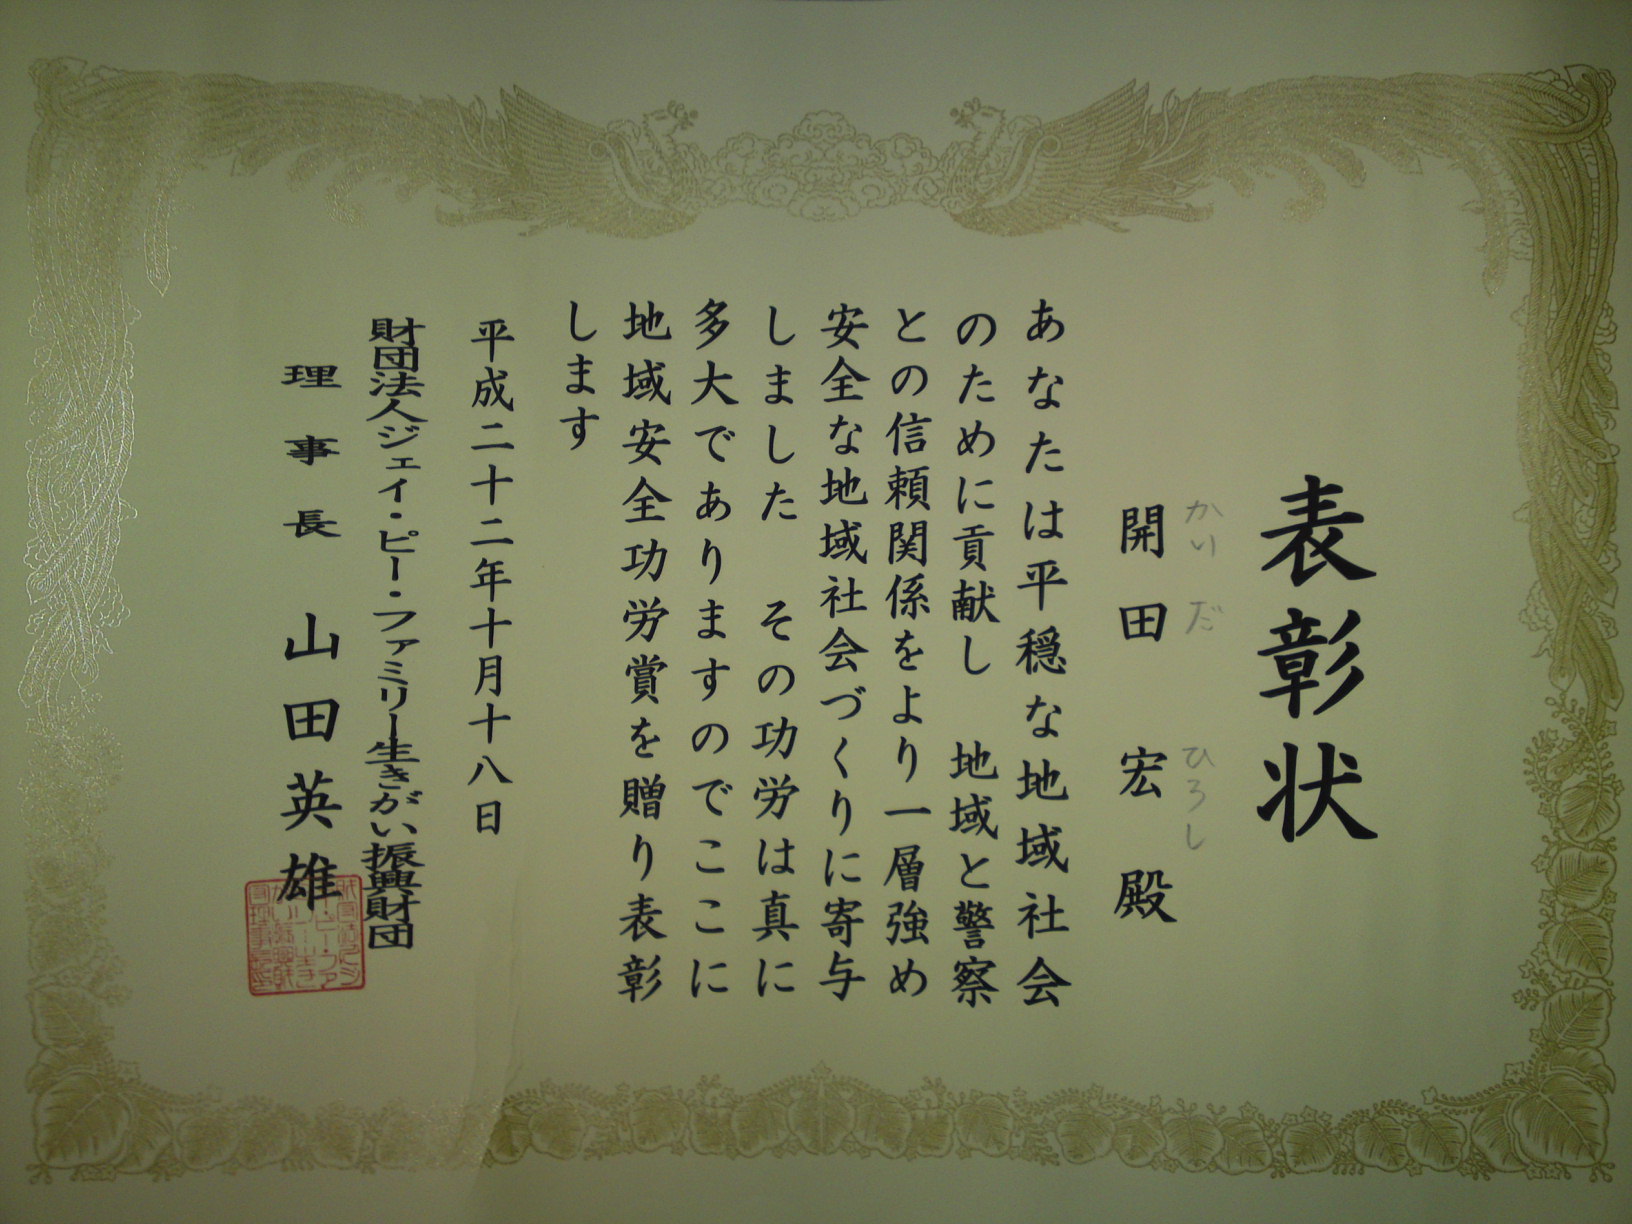 表彰状
かいだ ひろし
開田 宏 殿
あなたは平穏な地域社会
のために貢献し 地域と警察
との信頼関係をより一層強め
安全な地域社会づくりに寄与
しました その功労は真に
多大でありますのでここに
地域安全功労賞を贈り表彰
します
平成二十二年十月十八日
財団法人ジェイ・ピー・ファミリー生きがい振興財団
理事長 山田英雄